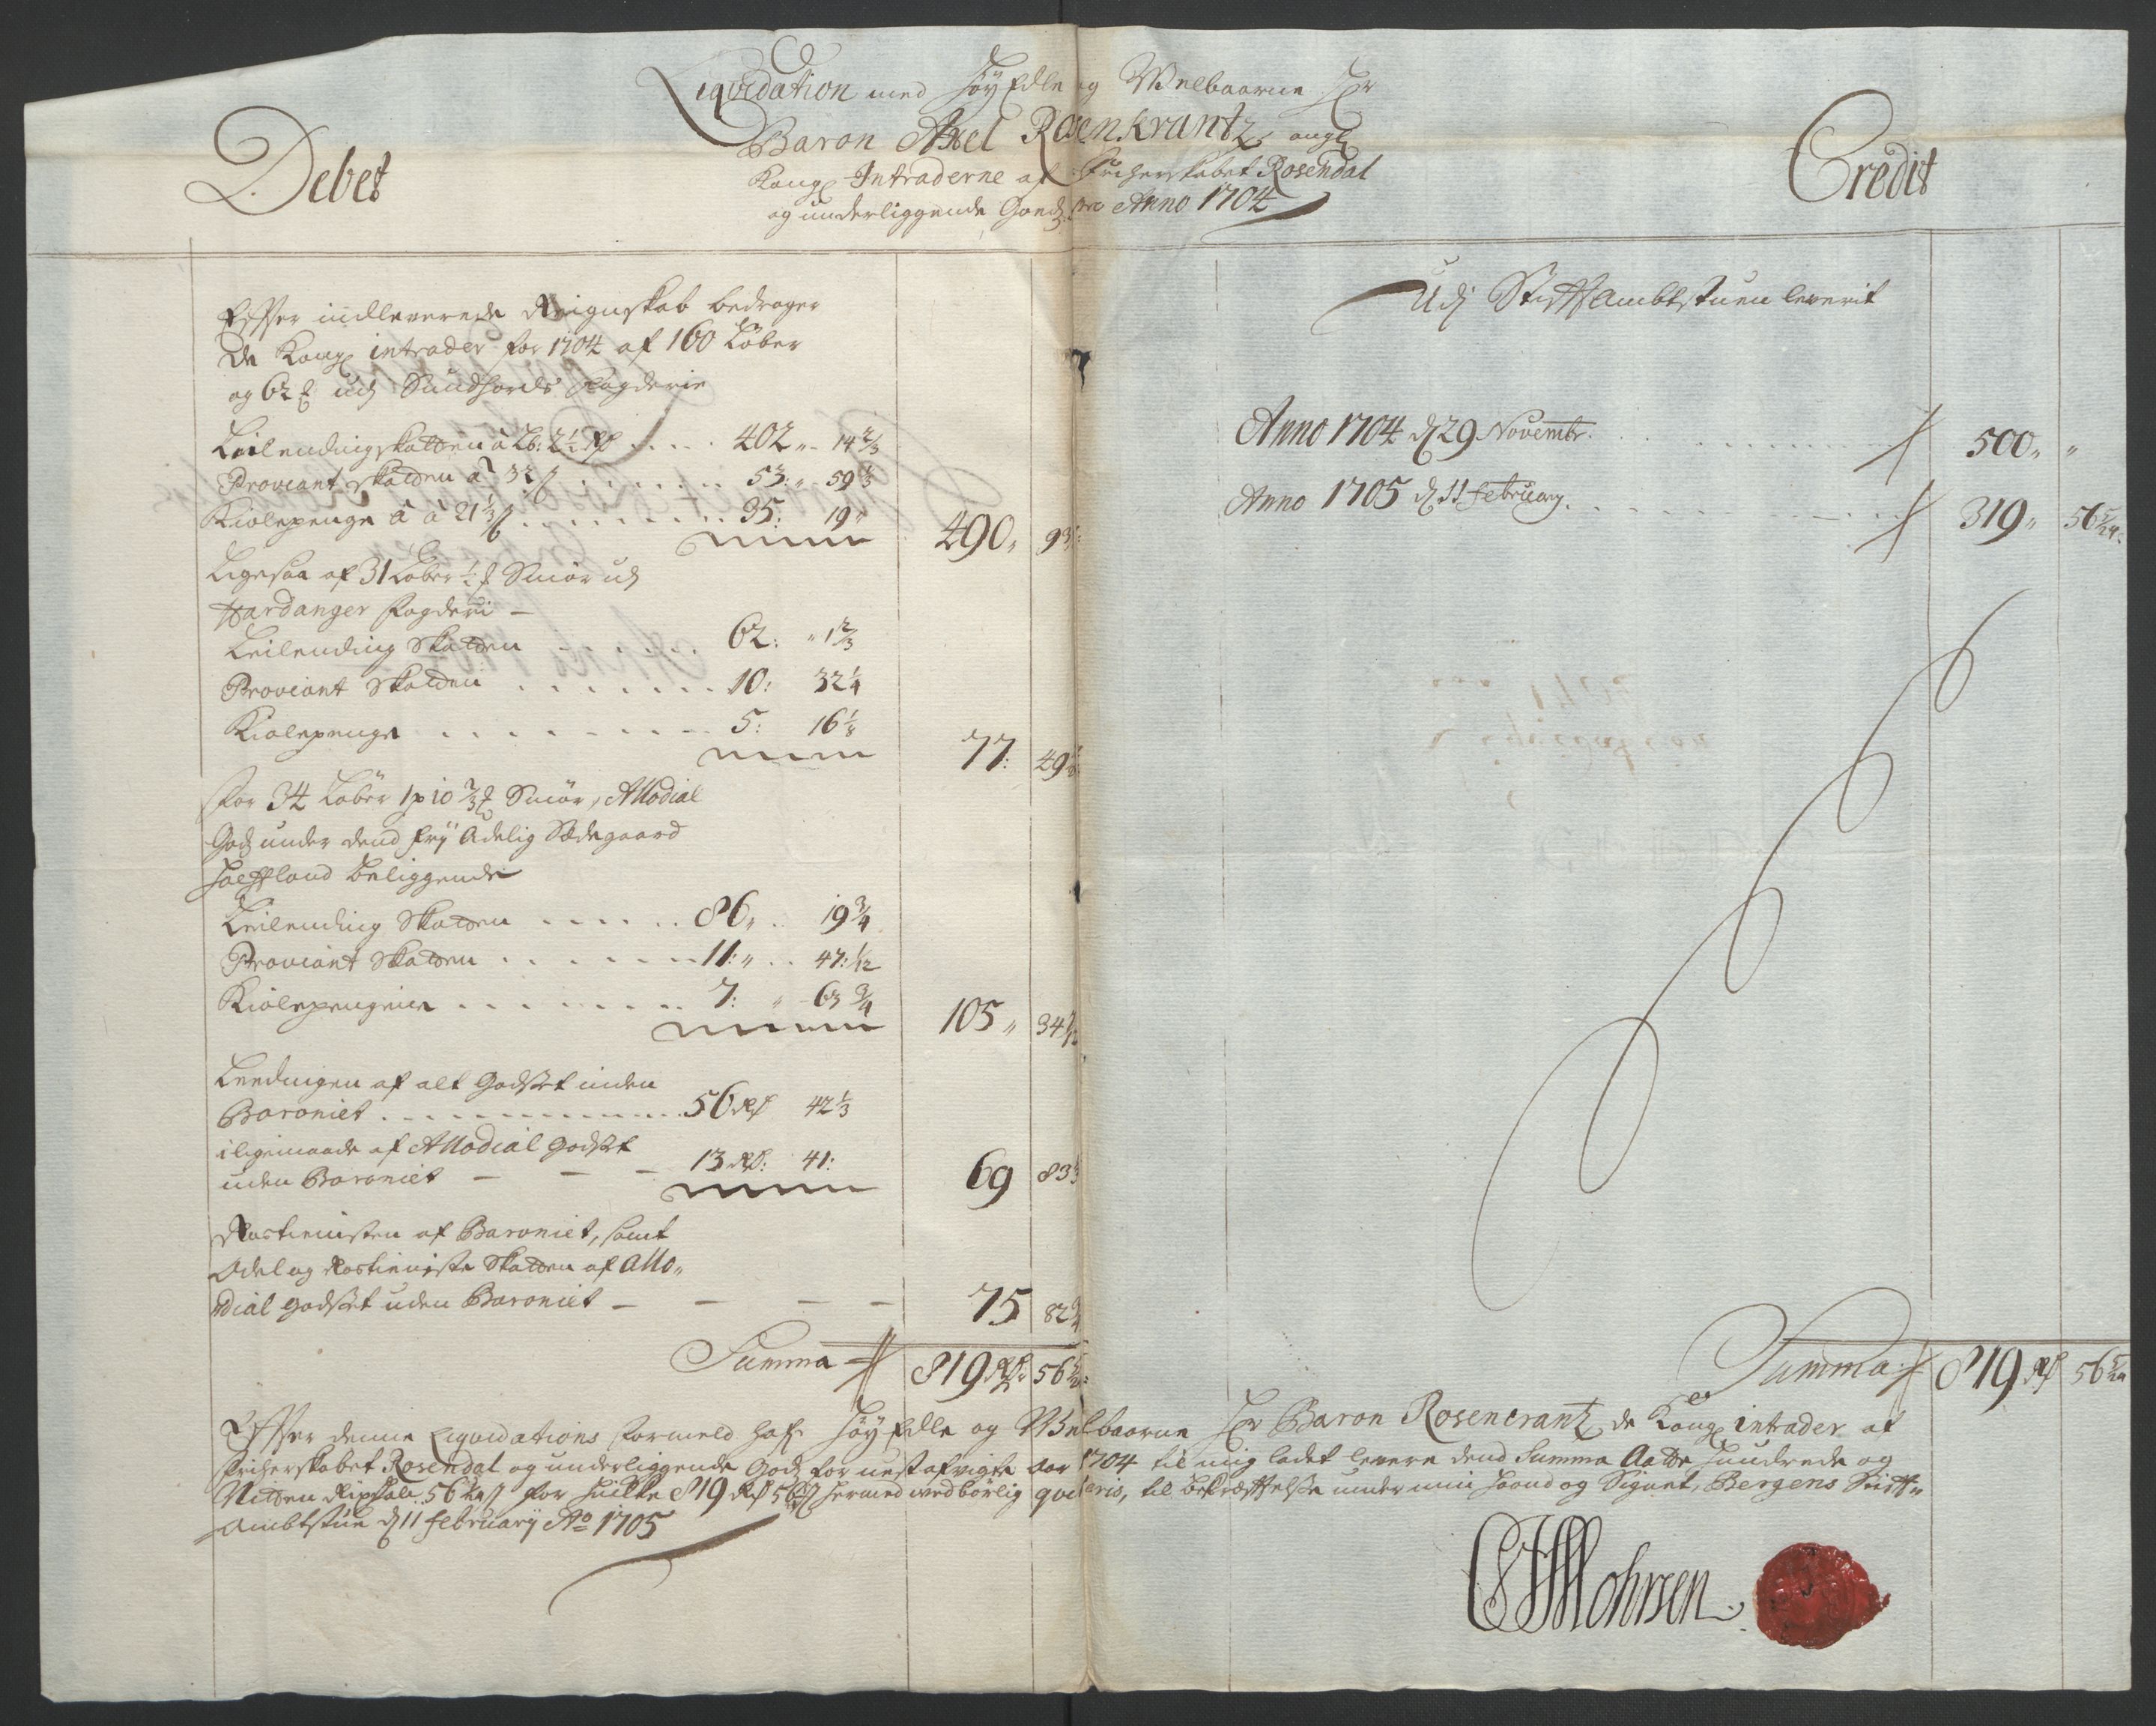 Liqvidation med Høy Edle og Welbaarne Hr
Baron Axel Rosenkrantz, angl
Kongl Intraderne af Friherskabet Rosendal
og underliggende Goeds pro Anno 1704
Debet
Credit
Efter indleverede Reignskab bedrager
de Kongl intrader for 1704 af 160 Løber
og 62 ℔ udj Sundhords fogderie
Leilendingskatten à Lb: 2½ Rd .... 402 „ 14 2/3
Proviant skatten a 32 ß ........ 53: „ 59 1/3
Kiolepenge à a 21 1/3 ß ......... 35: 19 „
490 „ 93
Ligesaa af 31 Løber ½ ℔ Smør udj
Hardanger fogderi –
Leilending Skatten ...... 62: „ 1 2/3
Proviant Skatten ....... 10: 32 ¼
Kiolepenge ......... 5: 16 1/8
77: 49
For 34 Løber 1 p 10 2/3 ℔ Smør, Allodial
Gods under dend frij Adelig Sædegaard
Hatteland beliggende
Leilending Skatten ...... 86 „ .. 19 ¾
Proviant Skatten ....... 11: „ .. 47: 1/12
Kiolepengene ........ 7: „ 63 ¾
105 „ 34 7/12
Leedingen af alt Godset inden
Baroniet ............. 56 Rd 42 1/3
iligemaade af Allodial Godset
uden Baroniet – – – 13 Rd: 41:
69 83 1/3
Rostienisten af Baroniet, samt
Odel og Rostieniste Skatten af Allo„
dial Godset uden Baroniet – – – –
75 82
Summa 819 Rd: 56
Udj Stifft Ambtstuen leverit
Anno 1704 d 29 Novembr. ............ 500 „ „
Anno 1705 d 11 february. ............ 319 „ 56 5/24
Summa 819 Rd 56 5/24
Efter denne Liqvidations formeld hafr Høy Edle og Welbaarne Hr Baron Rosencrantz, de Kongl intrader af
friherskabet Rosendal og underliggende Gods for nest afvigte Aar 1704 til mig ladet levere dend Summa Aatte hundrede og
Nitten Rixdaler 56 5/24 ß for hvilke 819 Rd 56 5/24 ß hermed vedbørlig qviteris, til bekræfftelse under min Haand og Signet, Bergens Stifft„
Ambtstue d 11 february Ao 1705
CHMohrsen